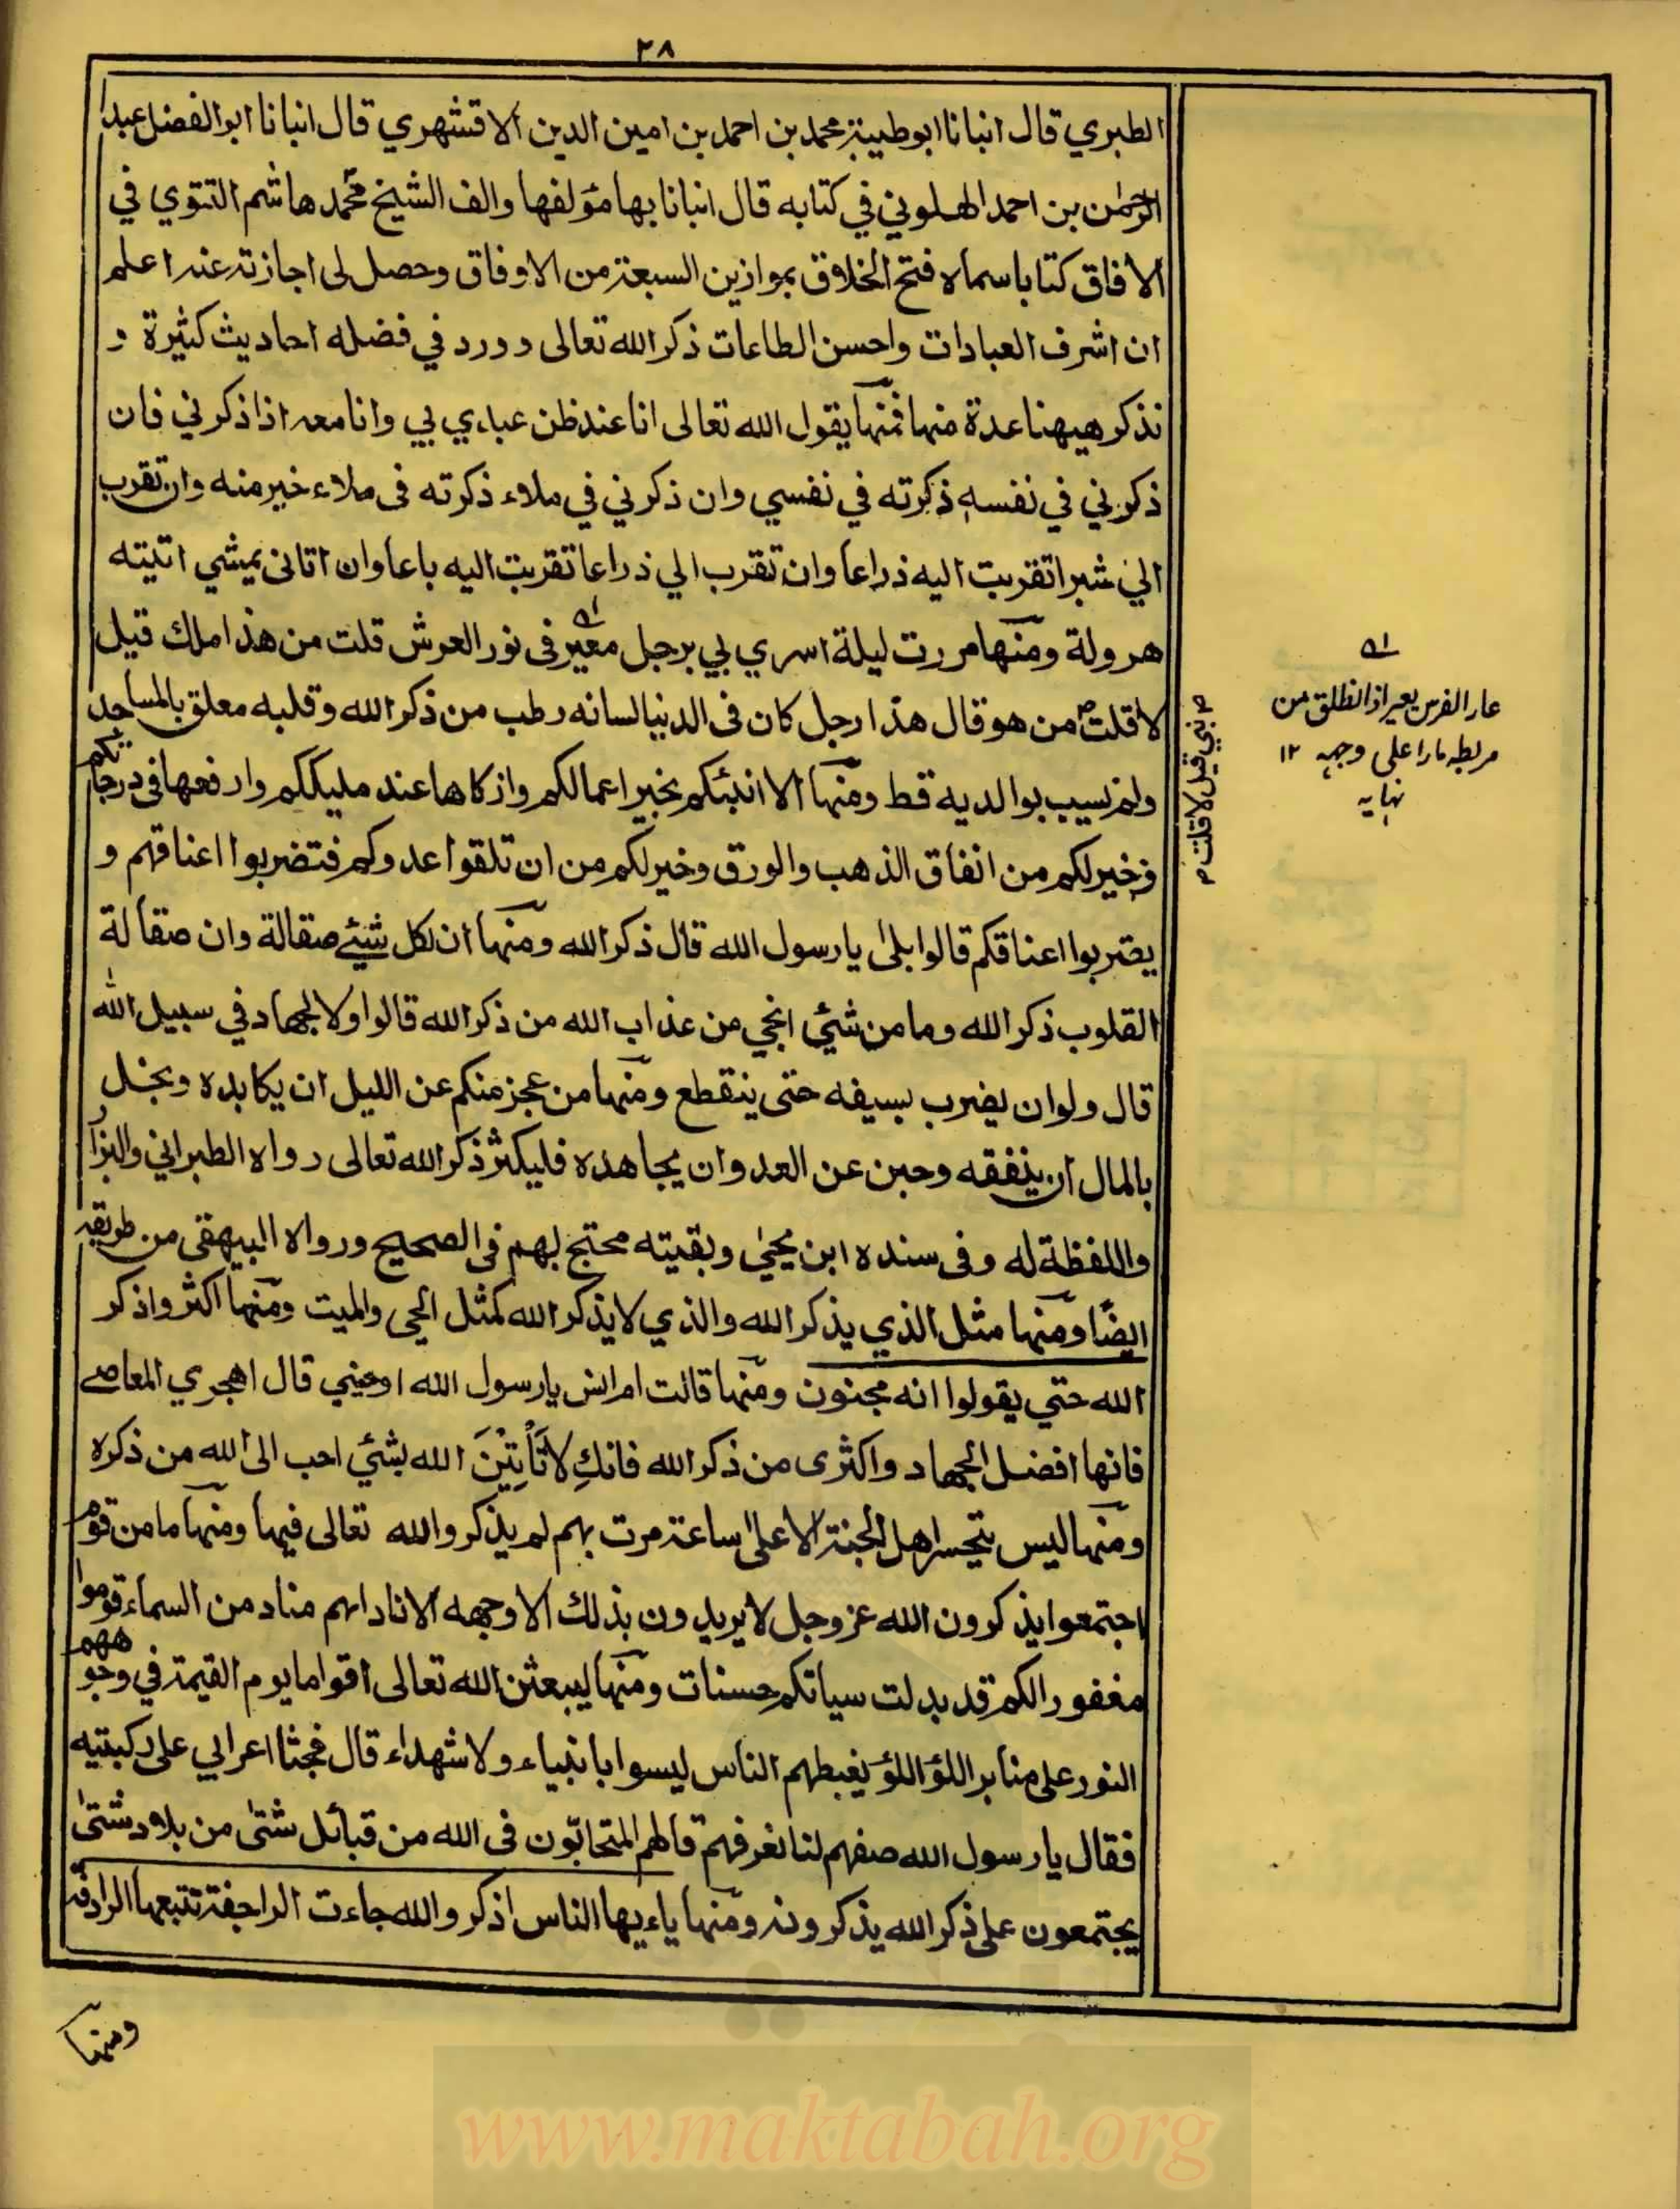 ٢٨
الطبري قال انبانا ابو طيبة محمد بن احمد بن امين الدين الاقشهري قال انبانا ابو الفضل عبد
الرحمٰن بن احمد الهلوني في كتابه قال انبانا بها مؤلفها والف الشيخ محمد هاشم التتوي في
الافاق كتابا سماه فتح الخلاق بموازين السبعة من الاوفاق وحصل لى اجازته عنه اعلم
ان اشرف العبادات واحسن الطاعات ذكر الله تعالى وورد في فضله احاديث كثيرة و
نذكر هيهنا عدة منها فمنها يقول الله تعالى انا عند ظن عبادي بي وانا معه اذا ذكرني فان
ذكرني في نفسه ذكرته في نفسي وان ذكرني في ملاء ذكرته فى ملاء خير منه وان تقرب
الي شبرا تقربت اليه ذراعا وان تقرب الي ذراعا تقربت اليه باعا وان اتانى يمشي اتيته
هرولة ومنها مررت ليلة اسري بي برجل معير فى نور العرش قلت من هذا ملك قيل
لا قلت من هو قال هذا رجل كان فى الدنيا لسانه رطب من ذكر الله وقلبه معلق بالمساجد
ولم نسيب بوالديه قط ومنها الا انبئكم بخير اعمالكم وازكاها عند مليككم وارفعها في درجاتكم
وخير لكم من انفاق الذهب والورق وخير لكم من ان تلقوا عدوكم فتضربوا اعناقهم و
يضربوا اعناقكم قالوا بلىٰ يا رسول الله قال ذكر الله ومنها ان لكل شيئ صقالة وان صقالة
القلوب ذكر الله وما من شيئ انجي من عذاب الله من ذكر الله قالوا ولا الجهاد في سبيل الله
قال ولو ان يضرب بسيفه حتى ينقطع ومنها من عجز منكم عن الليل ان يكابده وبخل
بالمال ان ينفقه وجبن عن العدو ان يجاهده فليكثر ذكر الله تعالى رواه الطبراني والبزار
واللفظة له وفى سنده ابن يحيىٰ وبقيته محتج بهم فى الصحيح ورواه البيهقى من طريقه
ايضًا ومنها مثل الذي يذكر الله والذي لا يذكر الله كمثل الحي والميت ومنها اكثروا ذكر
الله حتي يقولوا انه مجنون ومنها قالت ام انس يا رسول الله اوصني قال اهجري المعاصے
فانها افضل الجهاد واكثرى من ذكر الله فانكِ لا تَأْتِيْنَ الله بشئي احب الى الله من ذكره
ومنها ليس يتحسر اهل الجنة الا على ساعة مرت بهم لم يذكروا الله تعالى فيها ومنها ما من قوم
اجتمعوا يذكرون الله عز وجل لا يريدون بذلك الا وجهه الا ناداهم مناد من السماء قوموا
مغفورا لكم قد بدلت سياتكم حسنات ومنها ليبعثن الله تعالى اقواما يوم القيمة في وجوههم
النور على منابر اللؤ اللؤ يغبطهم الناس ليسوا بانبياء ولا شهداء قال فجثا اعرابي على ركبتيه
فقال يا رسول الله صفهم لنا نعرفهم قال هم المتحابّون فى الله من قبائل شتىٰ من بلاد شتىٰ
يجتمعون على ذكر الله يذكرونه ومنها ياءيها الناس اذكروا الله جاءت الراجفة تتبعها الرادفة
ومنها
م نبي قيل لا قلت م
عار الفرس يعير اذا نطلق من
مربطه مارا على وجهه ١٢
نهايه
www.maktabah.org